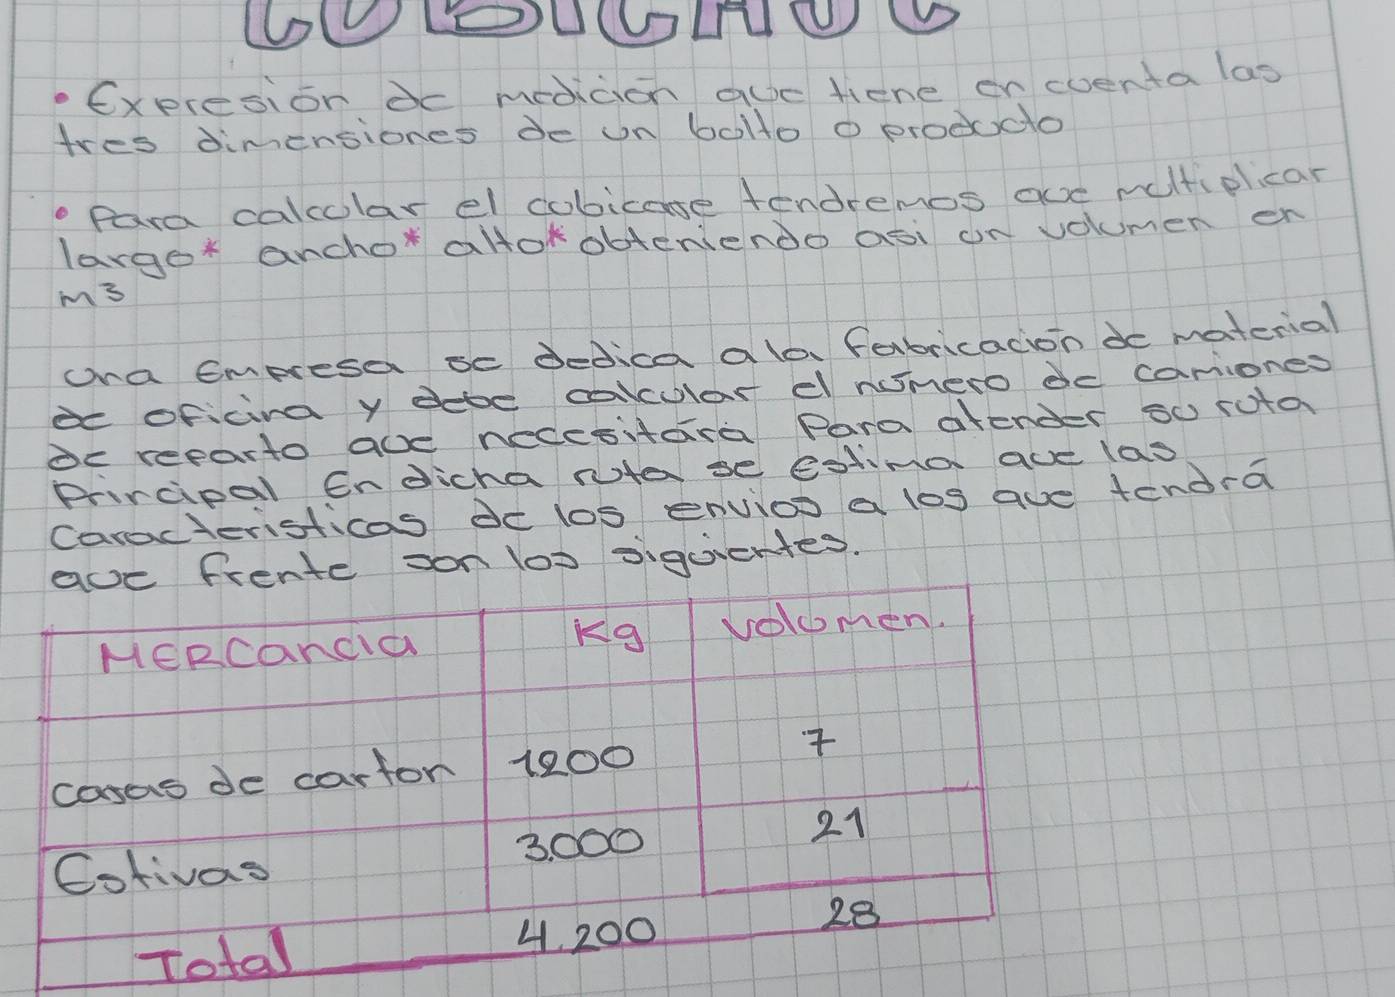 CUBICAJE
• Expresión de medición que tiene en cuenta las
tres dimensiones de un bolto o producto
• Para calcular el cubicaje tendremos que multiplicar
largo* ancho* alto* obteniendo asi un volumen en
m3
una empresa se dedica a la fabricación de material
de oficina y debe calcular el número de camiones
de reparto que necesitara Para atender su ruta
Principal En dicha ruta se estima que las
características de los envios a los que tendrá
que frente son los siguientes.
MERCancia Kg volumen.
cajas de carton 1200 7
Estivas 3.000 21
Total 4.200 28